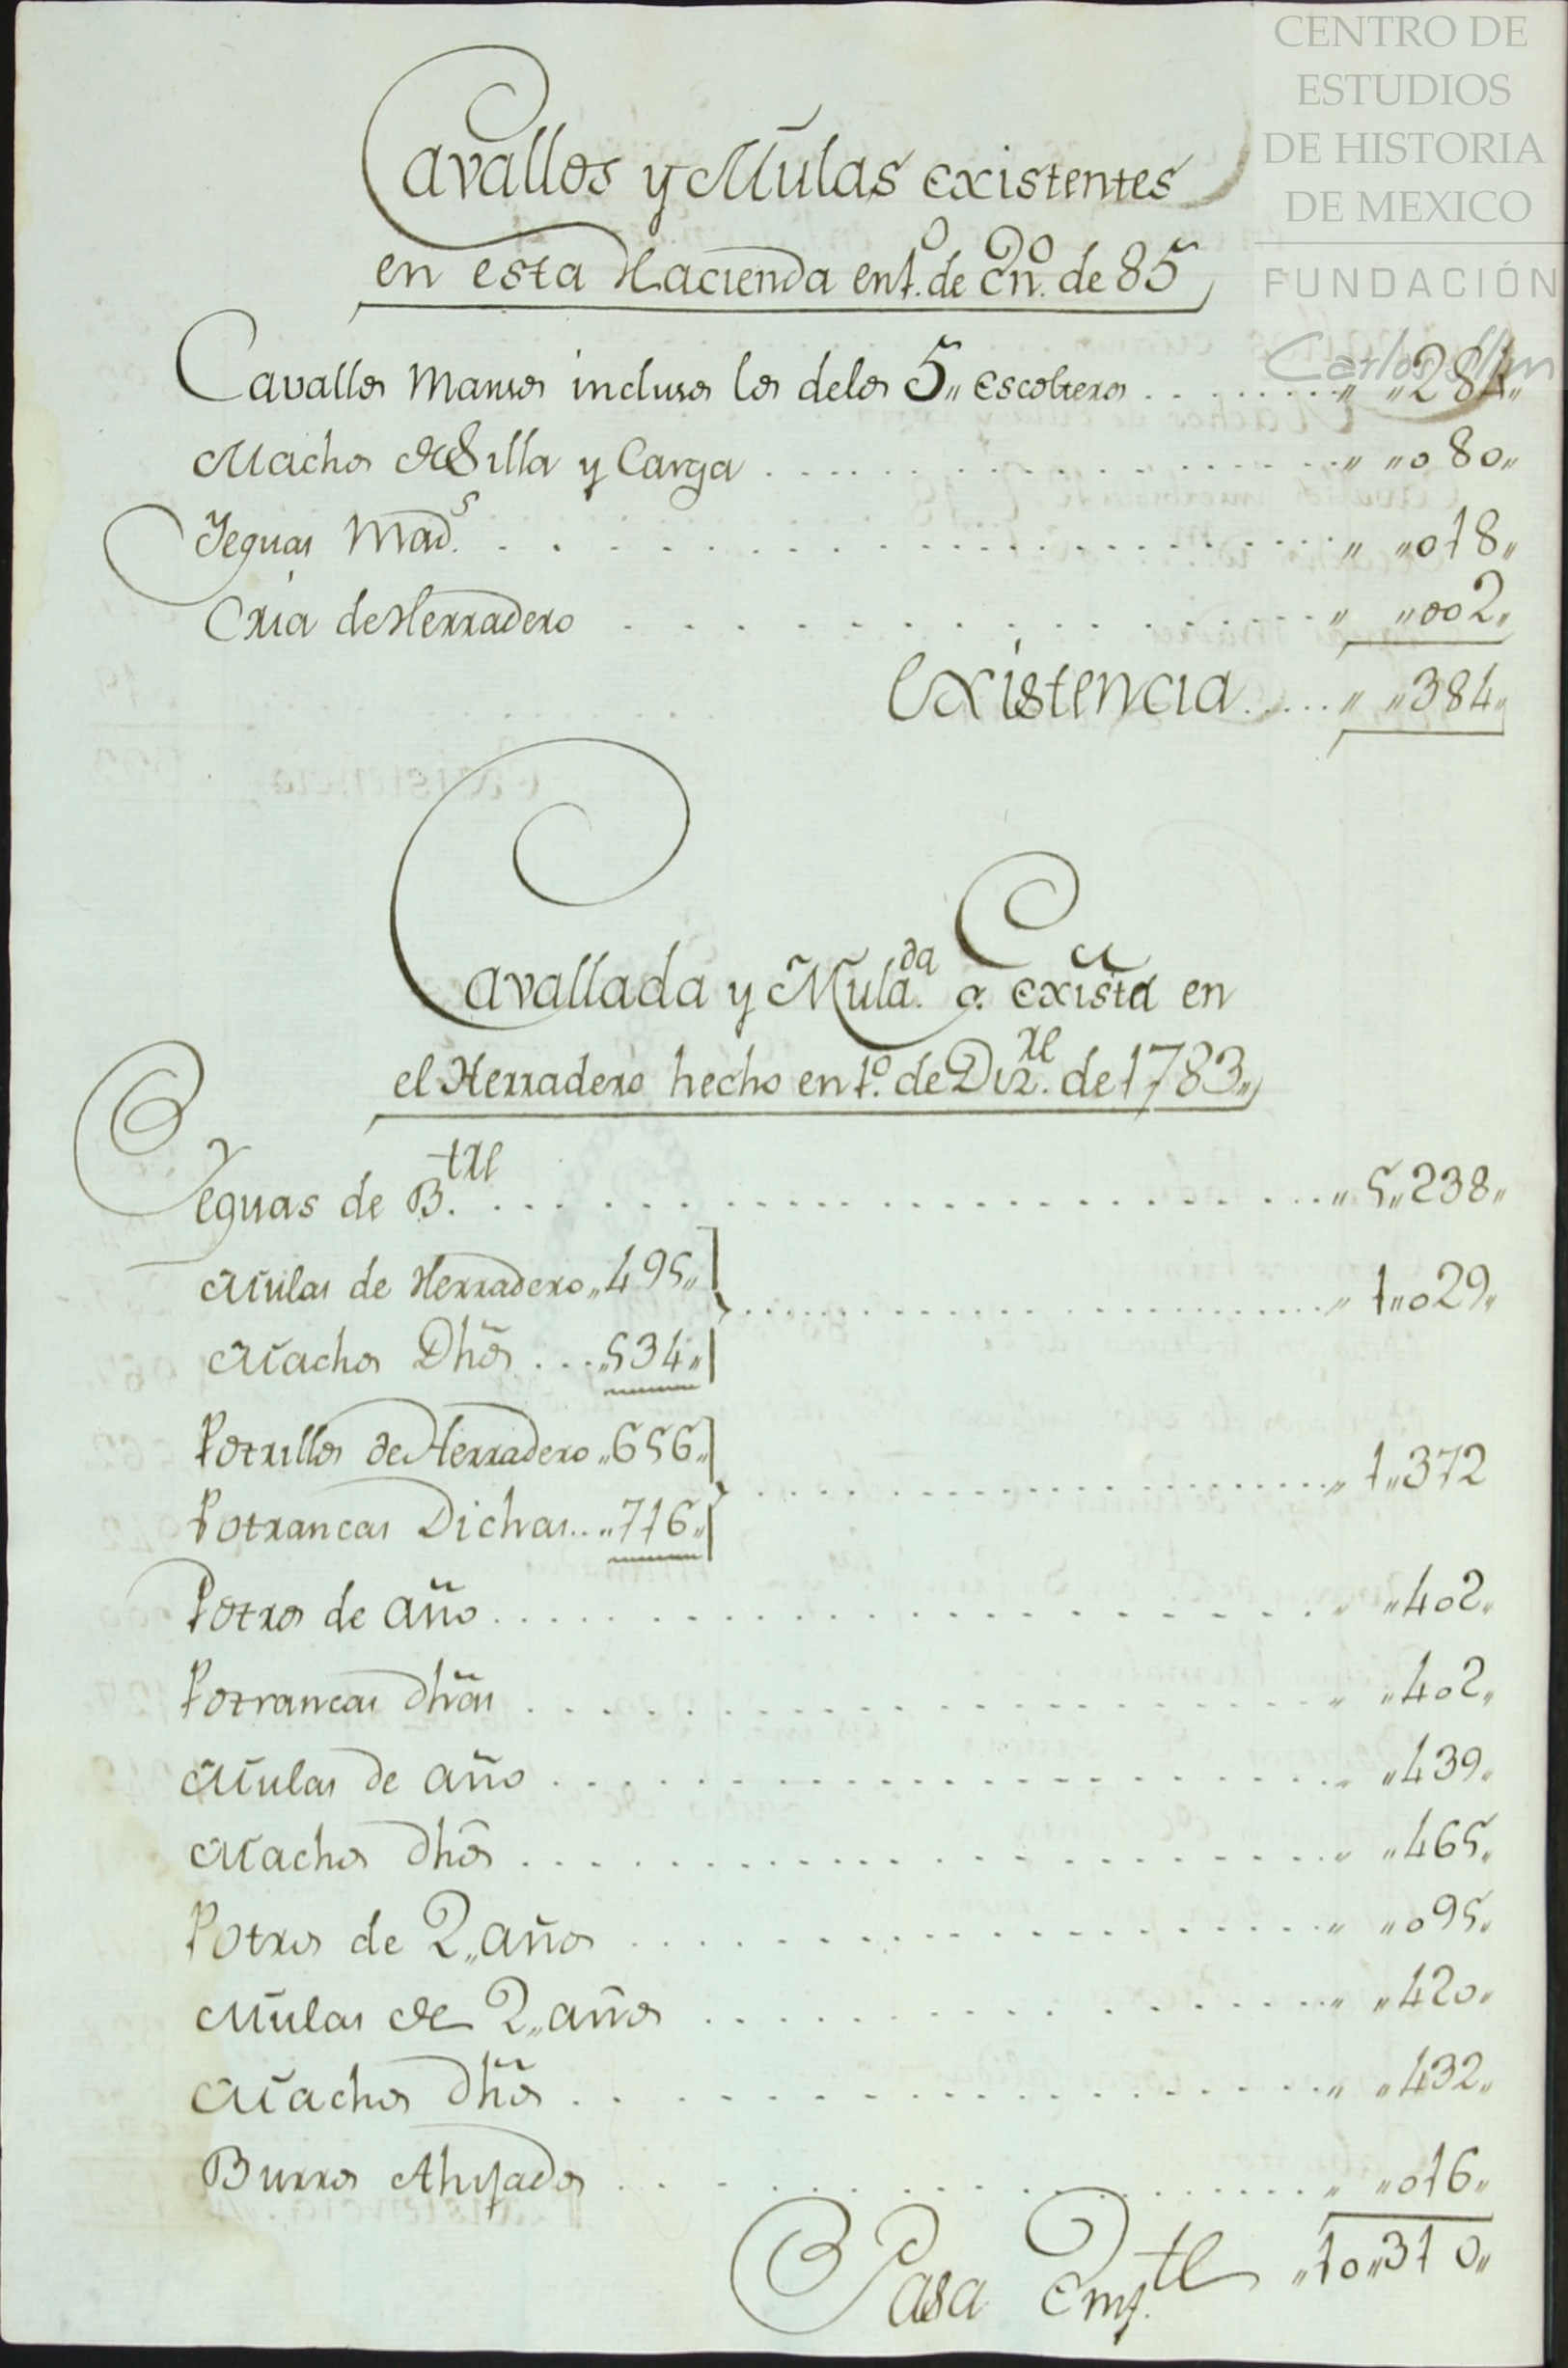 CENTRO DE
ESTUDIOS
DE HISTORIA
DE MEXICO
FUNDACIÓN
Carlos Slim
Cavallos y Mulas existentes
en esta Hacienda en 1.º de En.º de 85
Cavallos Mansos inclusos los de los 5,, escolteros ........ ,, ,,284,,
Machos de Silla y Carga ........ ,, ,,080,,
Yeguas Mad.s ........ ,, ,,018,,
Cria de Herradero ........ ,, ,,002,,
Existencia ..... ,, ,,384,,
Cavallada y Mula.da q. existia en
el Herradero hecho en 1.º de Diz.re de 1783,,
Yeguas de B.tre ........ ,,5,,238,,
Mulas de Herradero,,495,, ........ ,, 1,,029,,
Machos Dhõs ... ,,534,,
Potrillos de Herradero ,,656,, ........ ,, 1,,372
Potrancas Dichas.. ,,716,,
Potros de año ........ ,, ,,402,,
Potrancas dhãs ........ ,, ,,402,,
Mulas de año ........ ,, ,,439,,
Machos dhõs ........ ,, ,,465,,
Potros de 2,, años ........ ,, ,,095,,
Mulas de 2,, años ........ ,, ,,420,,
Machos dhõs ........ ,, ,,432,,
Burros Ahijados ........ ,, ,,016,,
Pasa Emf.te ,,10,,310,,